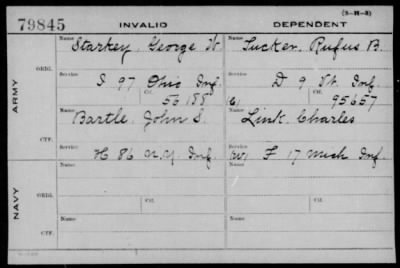 (3-H-3)
79845 INVALID DEPENDENT
Name Starkey, George W. Name Tucker, Rufus B.
ARMY
ORIG.
Service I 97 Ohio Inf. Service D 9 Vt. Inf.
Ctf. 56188 (C) Ctf. 95657
Name Bartle, John S. Name Link, Charles
CTF.
Service H 86 N.Y. Inf. Service (W) F 17 Mich Inf.
Name Name
NAVY
ORIG.
Service Service
Ctf. Ctf.
Name Name
CTF.
Service Service